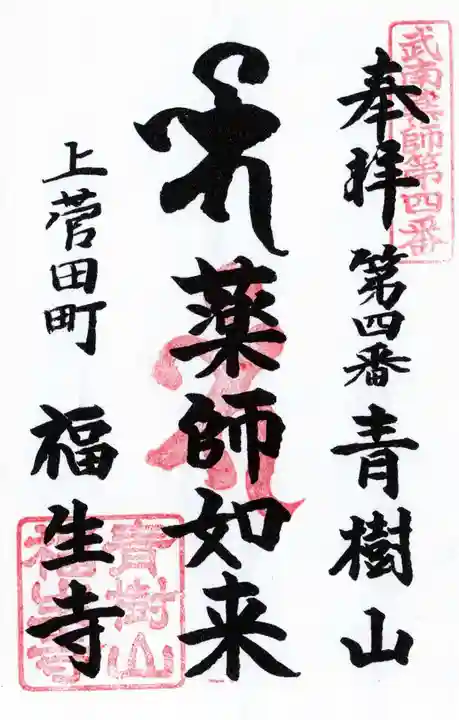 武南薬師第四番
奉拝 第四番 青樹山
薬師如来
上菅田町 福生寺
青樹山
福生寺